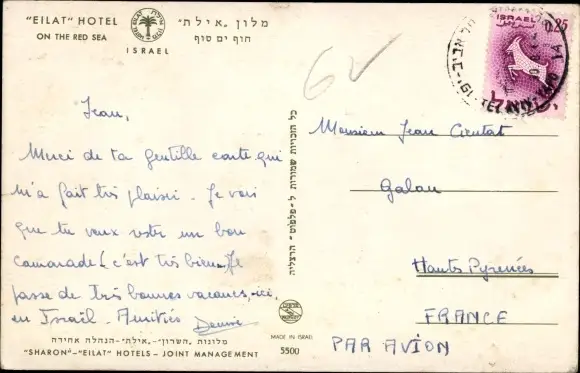 "EILAT" HOTEL
ON THE RED SEA
ISRAEL
מלון "אילת"
חוף ים סוף
62
ISRAEL
0.25
Jean,
Merci de ta gentille carte qui
m'a fait très plaisir. Je vois
que tu veux rester un bon
camarade (c'est très bien). Je
passe de très bonnes vacances, ici,
en Israël. Amitiés
כל הזכויות שמורות ל-פלפוט - הרצליה
Monsieur Jean Cieutat
Galan
Hautes Pyrenées
FRANCE
PAR AVION
מלונות "השרון"-"אילת"-הנהלה אחידה
"SHARON"-"EILAT" HOTELS - JOINT MANAGEMENT
MADE IN ISRAEL
5500